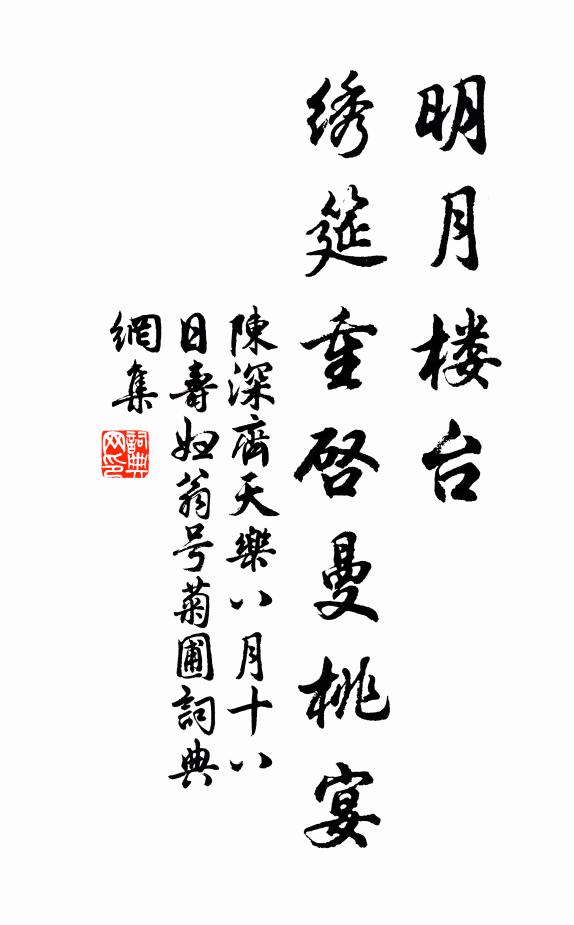 明月楼台
绣筵重启曼桃宴
陳深齊天樂八月十八
日壽妇翁号菊圃詞典
網集
詞典网印